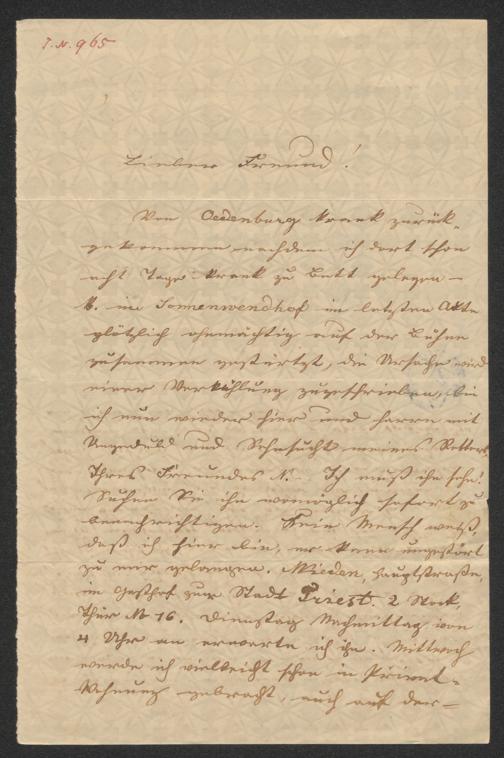 I. N. 965
Lieber Freund!
Von Oedenburg krank zurück-
gekommen nachdem ich dort schon
acht Tage krank zu Bett gelegen –
u. im Sonnenwendhof im letzten Akte
plötzlich ohnmächtig auf der Bühne
zusammen gestürtzt, die Ursache wird
einer Verkühlung zugeschrieben, bin
ich nun wieder hier und harre mit
Ungeduld und Sehnsucht meines Retters,
Ihres Freundes N. – Ich muß ihn sehn!
Suchen Sie ihn womöglich sofort zu
benachrichtigen. Kein Mensch weiß,
daß ich hier bin, er kann ungestört
zu mir gelangen. Wieden, Hauptstraße,
im Gasthof zur Stadt Triest. 2 Stock,
Thür No 16. Dienstag Nachmittag von
4 Uhr an erwarte ich ihn. Mittwoch
werde ich vielleicht schon in Privat-
Wohnung gebracht, auch auf der –